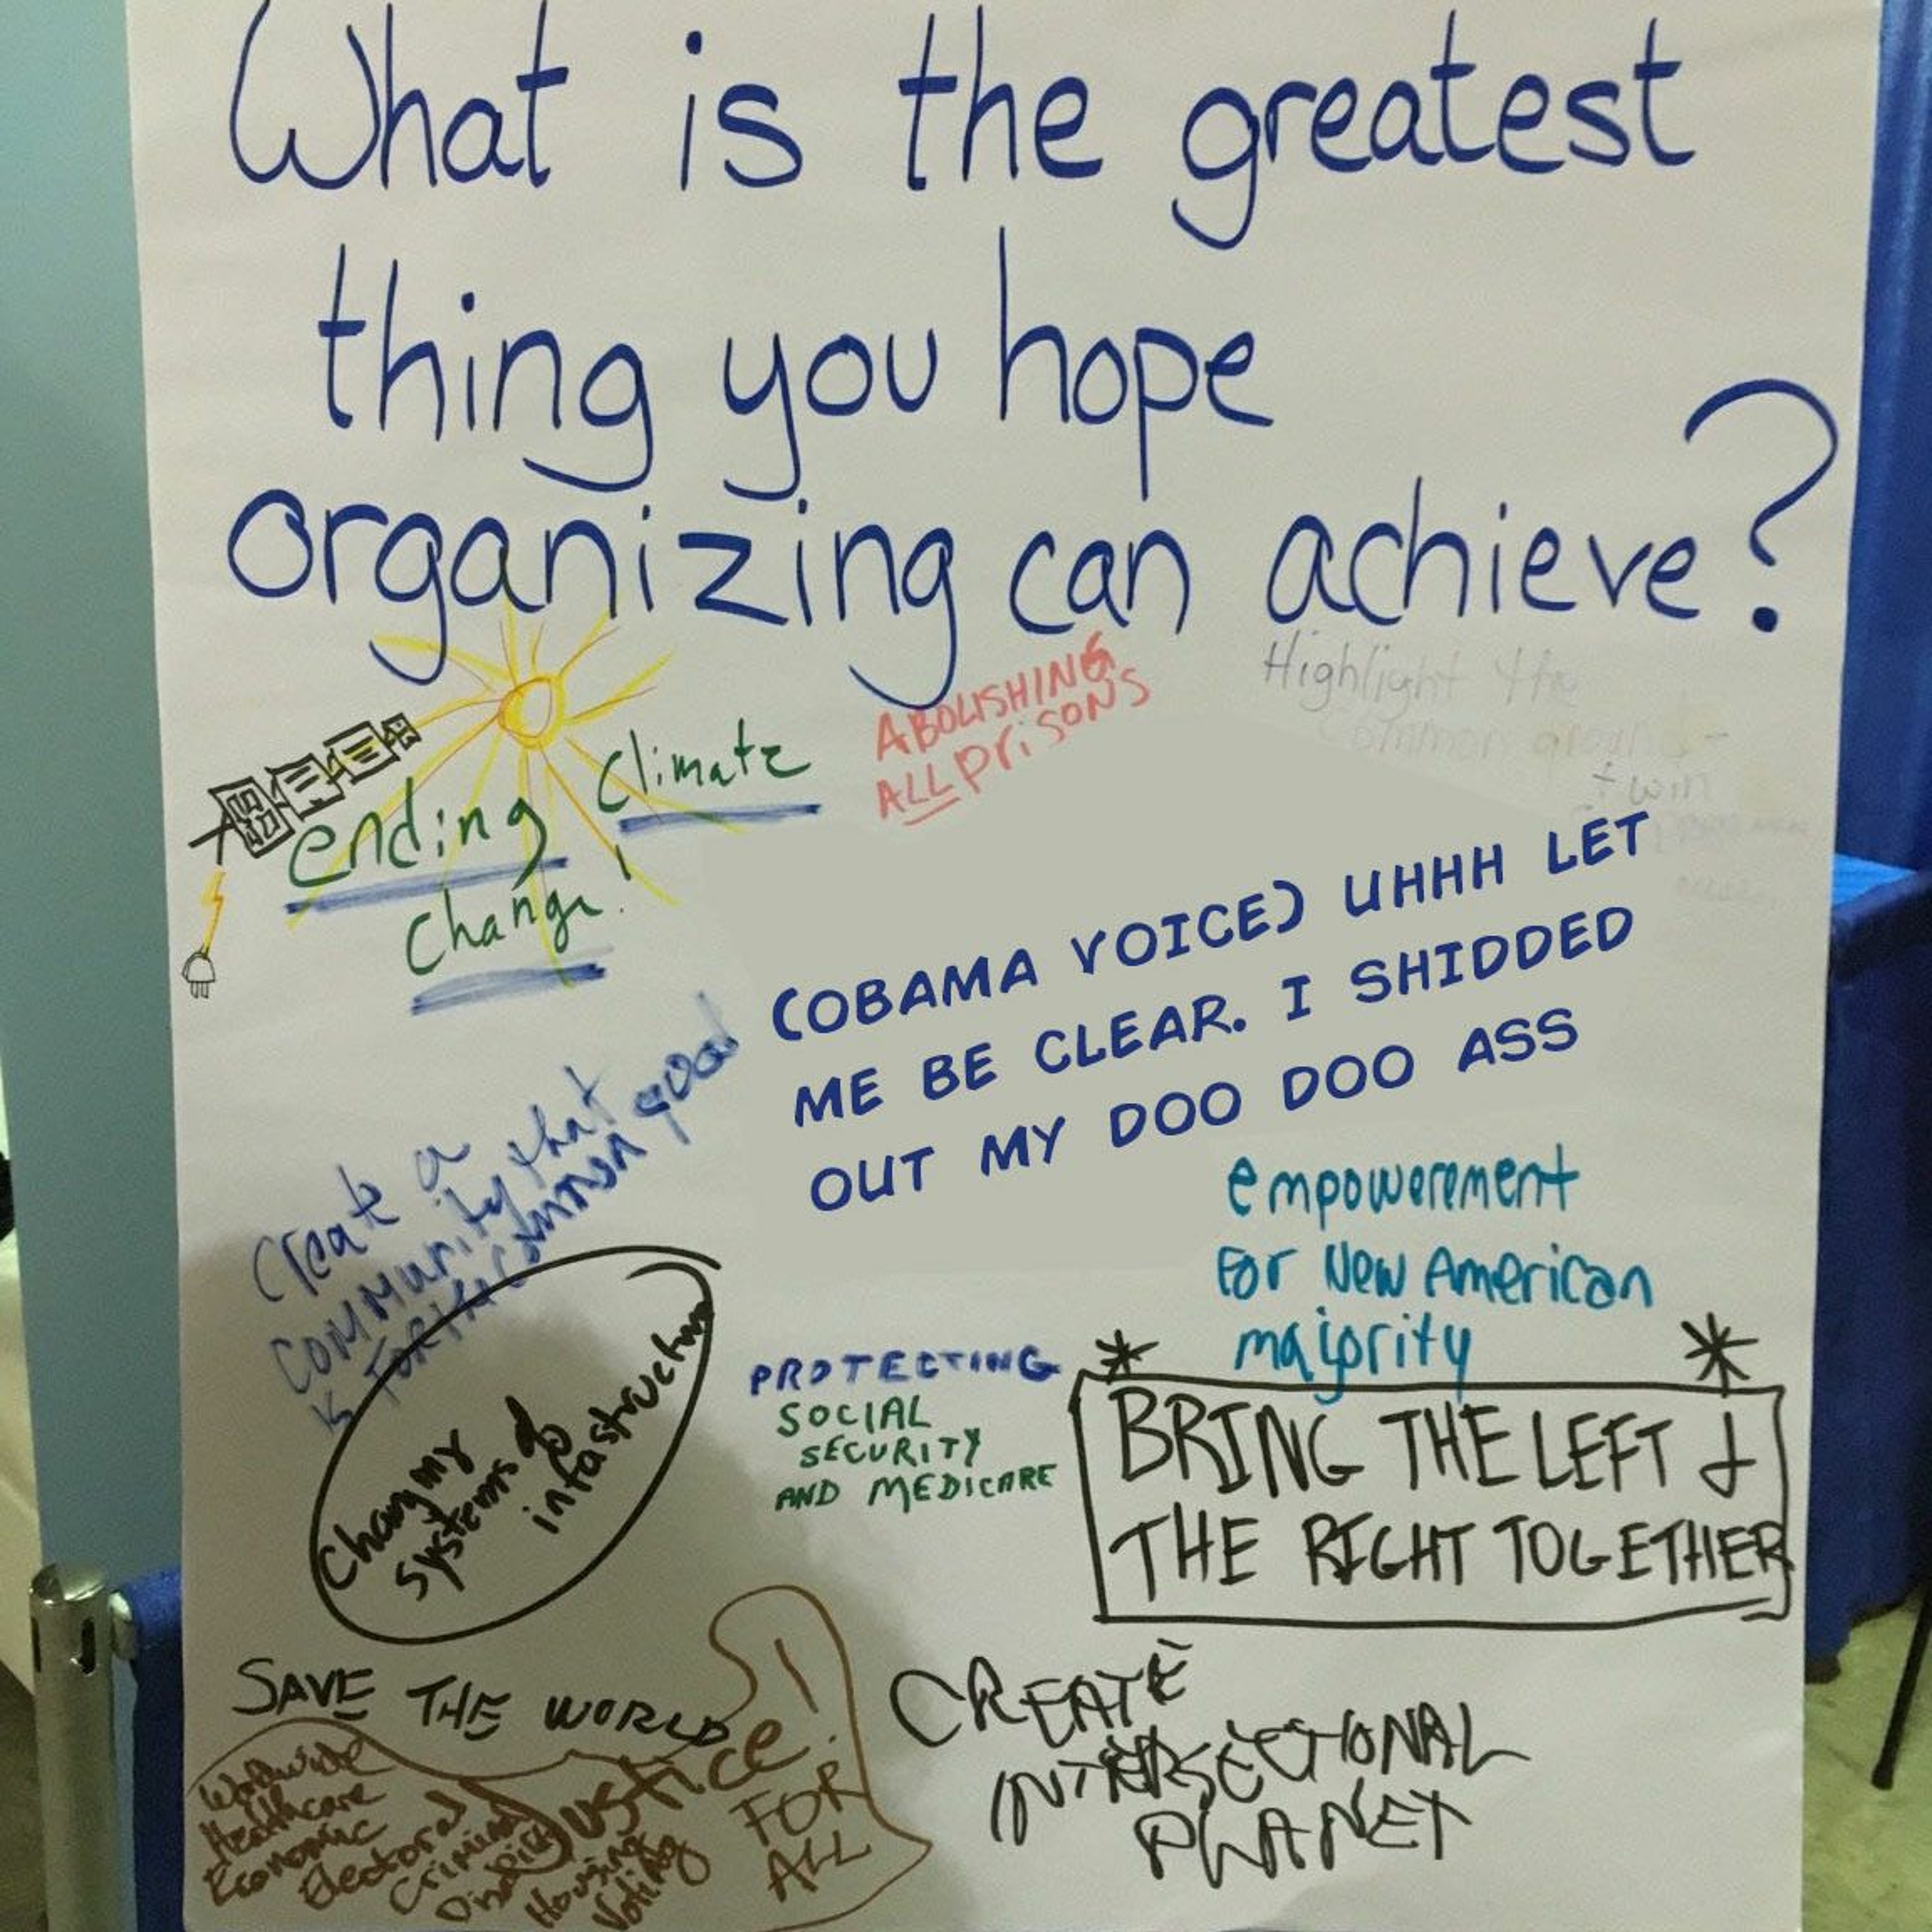 What is the greatest
thing you hope
organizing can achieve?
ending Climate
Change!
ABOLISHING
ALL PRISONS
Highlight the
Common ground -
+ win
(OBAMA VOICE) UHHH LET
ME BE CLEAR. I SHIDDED
OUT MY DOO DOO ASS
Create a
community that
is for the common good
empowerement
For New American
majority
Changing
systems of
infastructure
PROTECTING
SOCIAL
SECURITY
AND MEDICARE
BRING THE LEFT &
THE RIGHT TOGETHER
SAVE THE WORLD
Justice!
FOR
ALL
Worldwide
Healthcare
Economic
Electoral
Criminal
Housing
Voting
CREATE
INTERSECTIONAL
PLANET